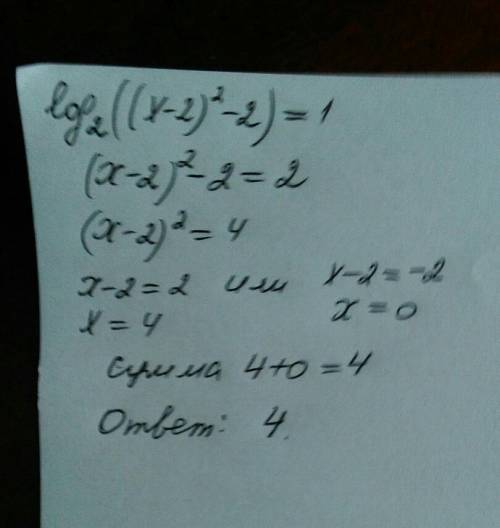 log₂((x-2)²-2)=1
(x-2)²-2=2
(x-2)²=4
x-2=2 или x-2=-2
x=4 x=0
сумма 4+0=4
Ответ: 4.